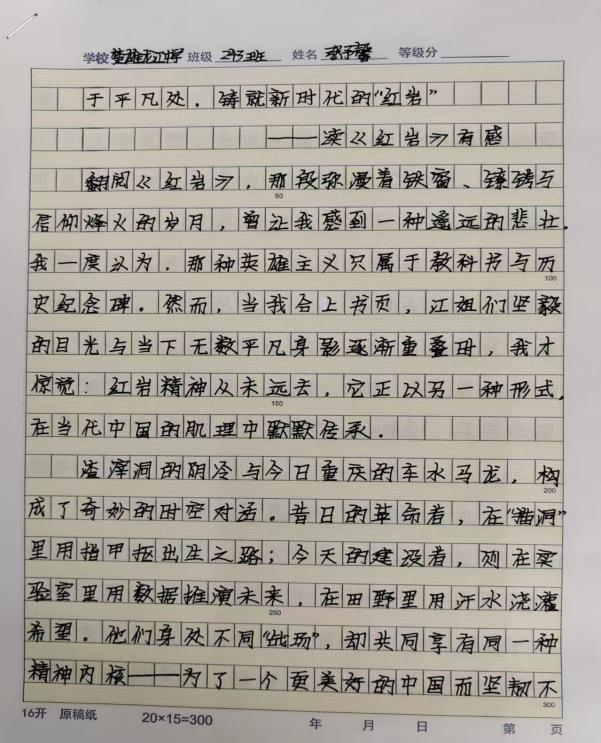 学校 楚雄龙江中学 班级 293班 姓名 等级分
于平凡处，铸就新时代的“红岩”
——读《红岩》有感
翻阅《红岩》，那段弥漫着铁窗、镣铐与
信仰烽火的岁月，曾让我感到一种遥远的悲壮。
我一度以为，那种英雄主义只属于教科书与历
50
100
史纪念碑。然而，当我合上书页，江姐们坚毅
的目光与当下无数平凡身影逐渐重叠时，我才
惊觉：红岩精神从未远去，它正以另一种形式，
150
在当代中国的肌理中默默传承。
渣滓洞的阴冷与今日重庆的车水马龙，构
200
成了奇妙的时空对话。昔日的革命者，在“黑洞”
里用指甲抠出生之路；今天的建设者，则在实
验室里用数据推演未来，在田野里用汗水浇灌
250
希望。他们身处不同“战场”，却共同享有同一种
精神内核——为了一个更美好的中国而坚韧不
300
16开 原稿纸 20×15=300 年 月 日 第 页